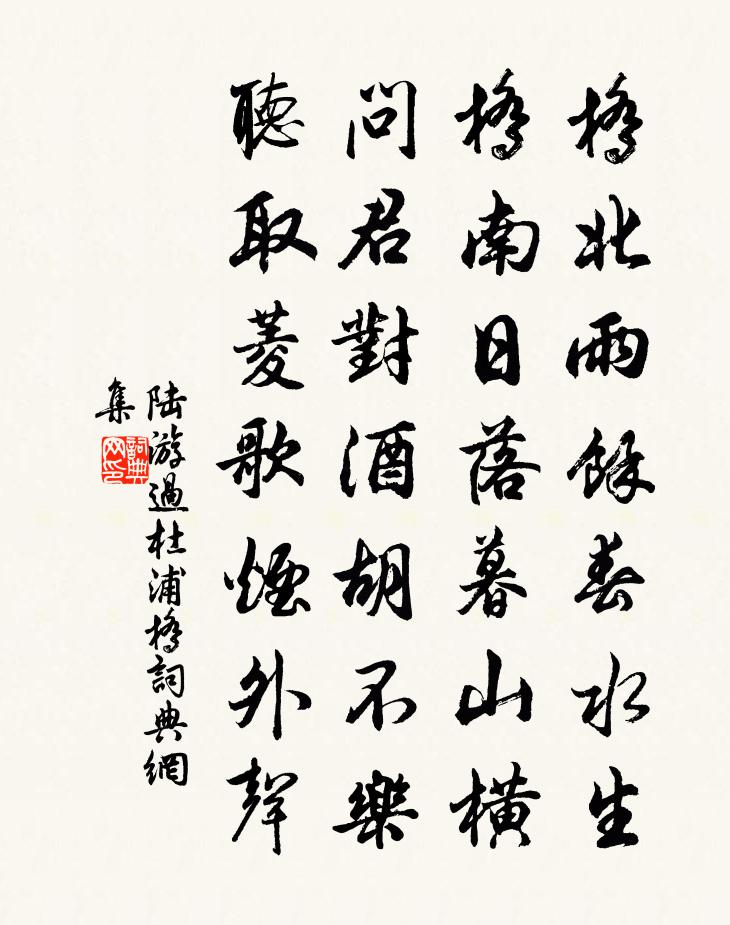 橋北雨餘春水生
橋南日落暮山橫
問君對酒胡不樂
聽取菱歌煙外聲
陸游過杜浦橋詞典網
集
詞典
网印